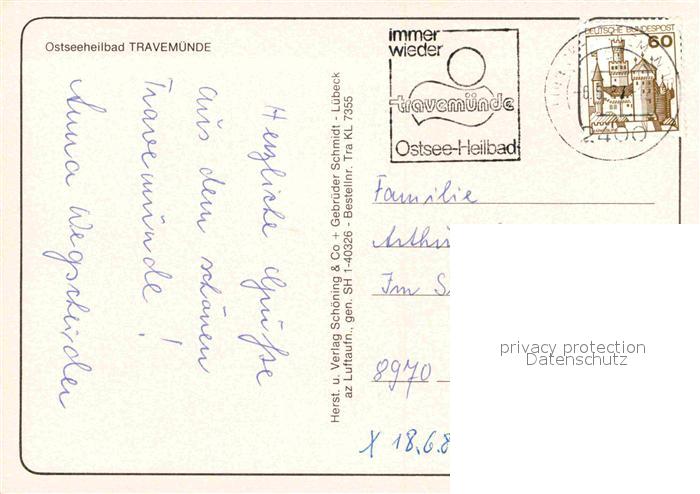 Ostseeheilbad TRAVEMÜNDE
Herzliche Grüße
aus dem schönen
Travemünde!
Anna Wegscheider
Herst. u. Verlag Schöning & Co + Gebrüder Schmidt - Lübeck
az Luftaufn., gen. SH 1-40326 - Bestellnr. Tra KL 7355
immer
wieder
travemünde
Ostsee-Heilbad
DEUTSCHE BUNDESPOST
60
2400
Familie
Im S
8970
X 18.6.8
privacy protection
Datenschutz